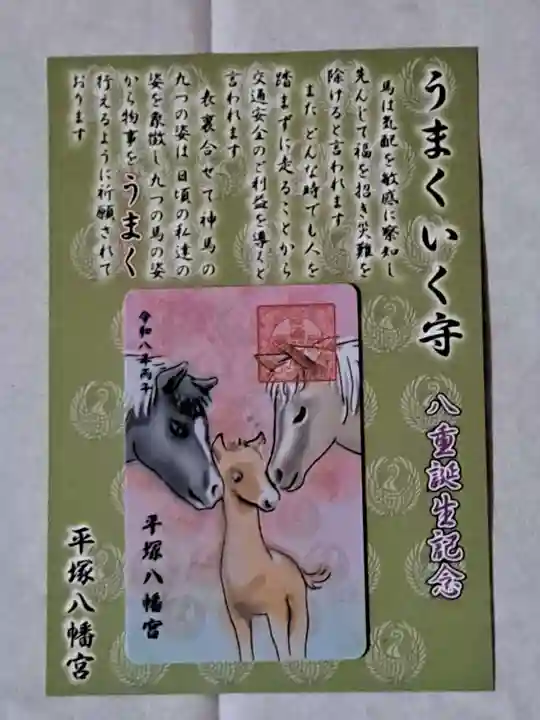 うまくいく守
馬は気配を敏感に察知し
先んじて福を招き災難を
除けると言われます
また どんな時でも人を
踏まずに走ることから
交通安全のご利益を導くと
言われます
表裏合せて神馬の
九つの姿は日頃の私達の
姿を象徴し九つの馬の姿
から物事をうまく
行えるように祈願されて
おります
八重誕生記念
平塚八幡宮
令和八年丙午
平塚八幡宮